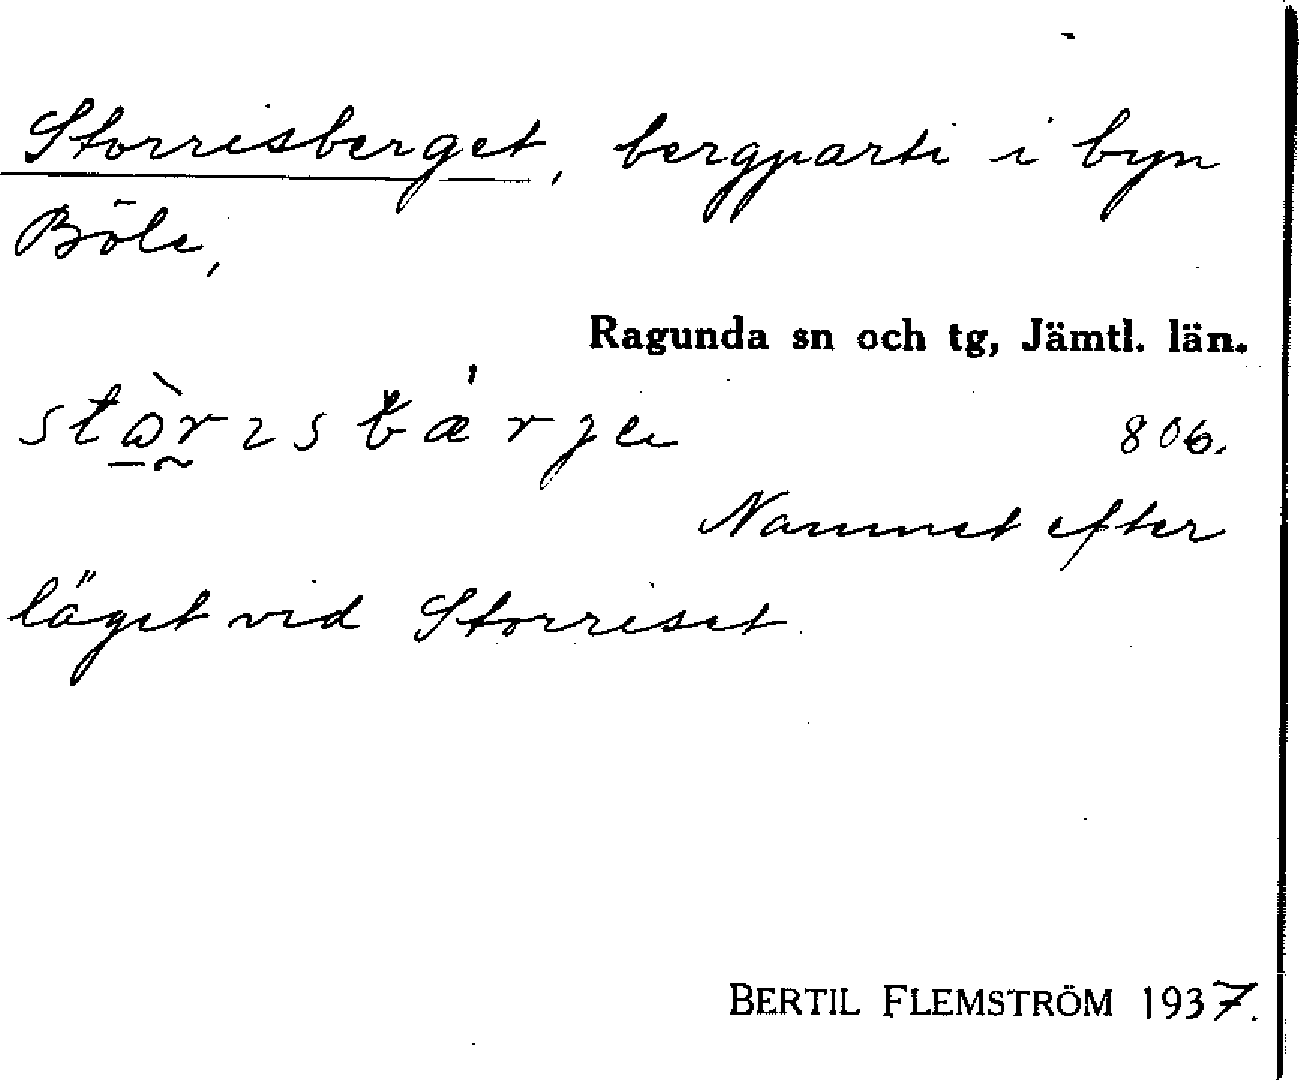 Storrisberget, bergparti i byn
Böle,
Ragunda sn och tg, Jämtl. län.
806.
Namnet efter
läget vid Storriset.
BERTIL FLEMSTRÖM 1937.